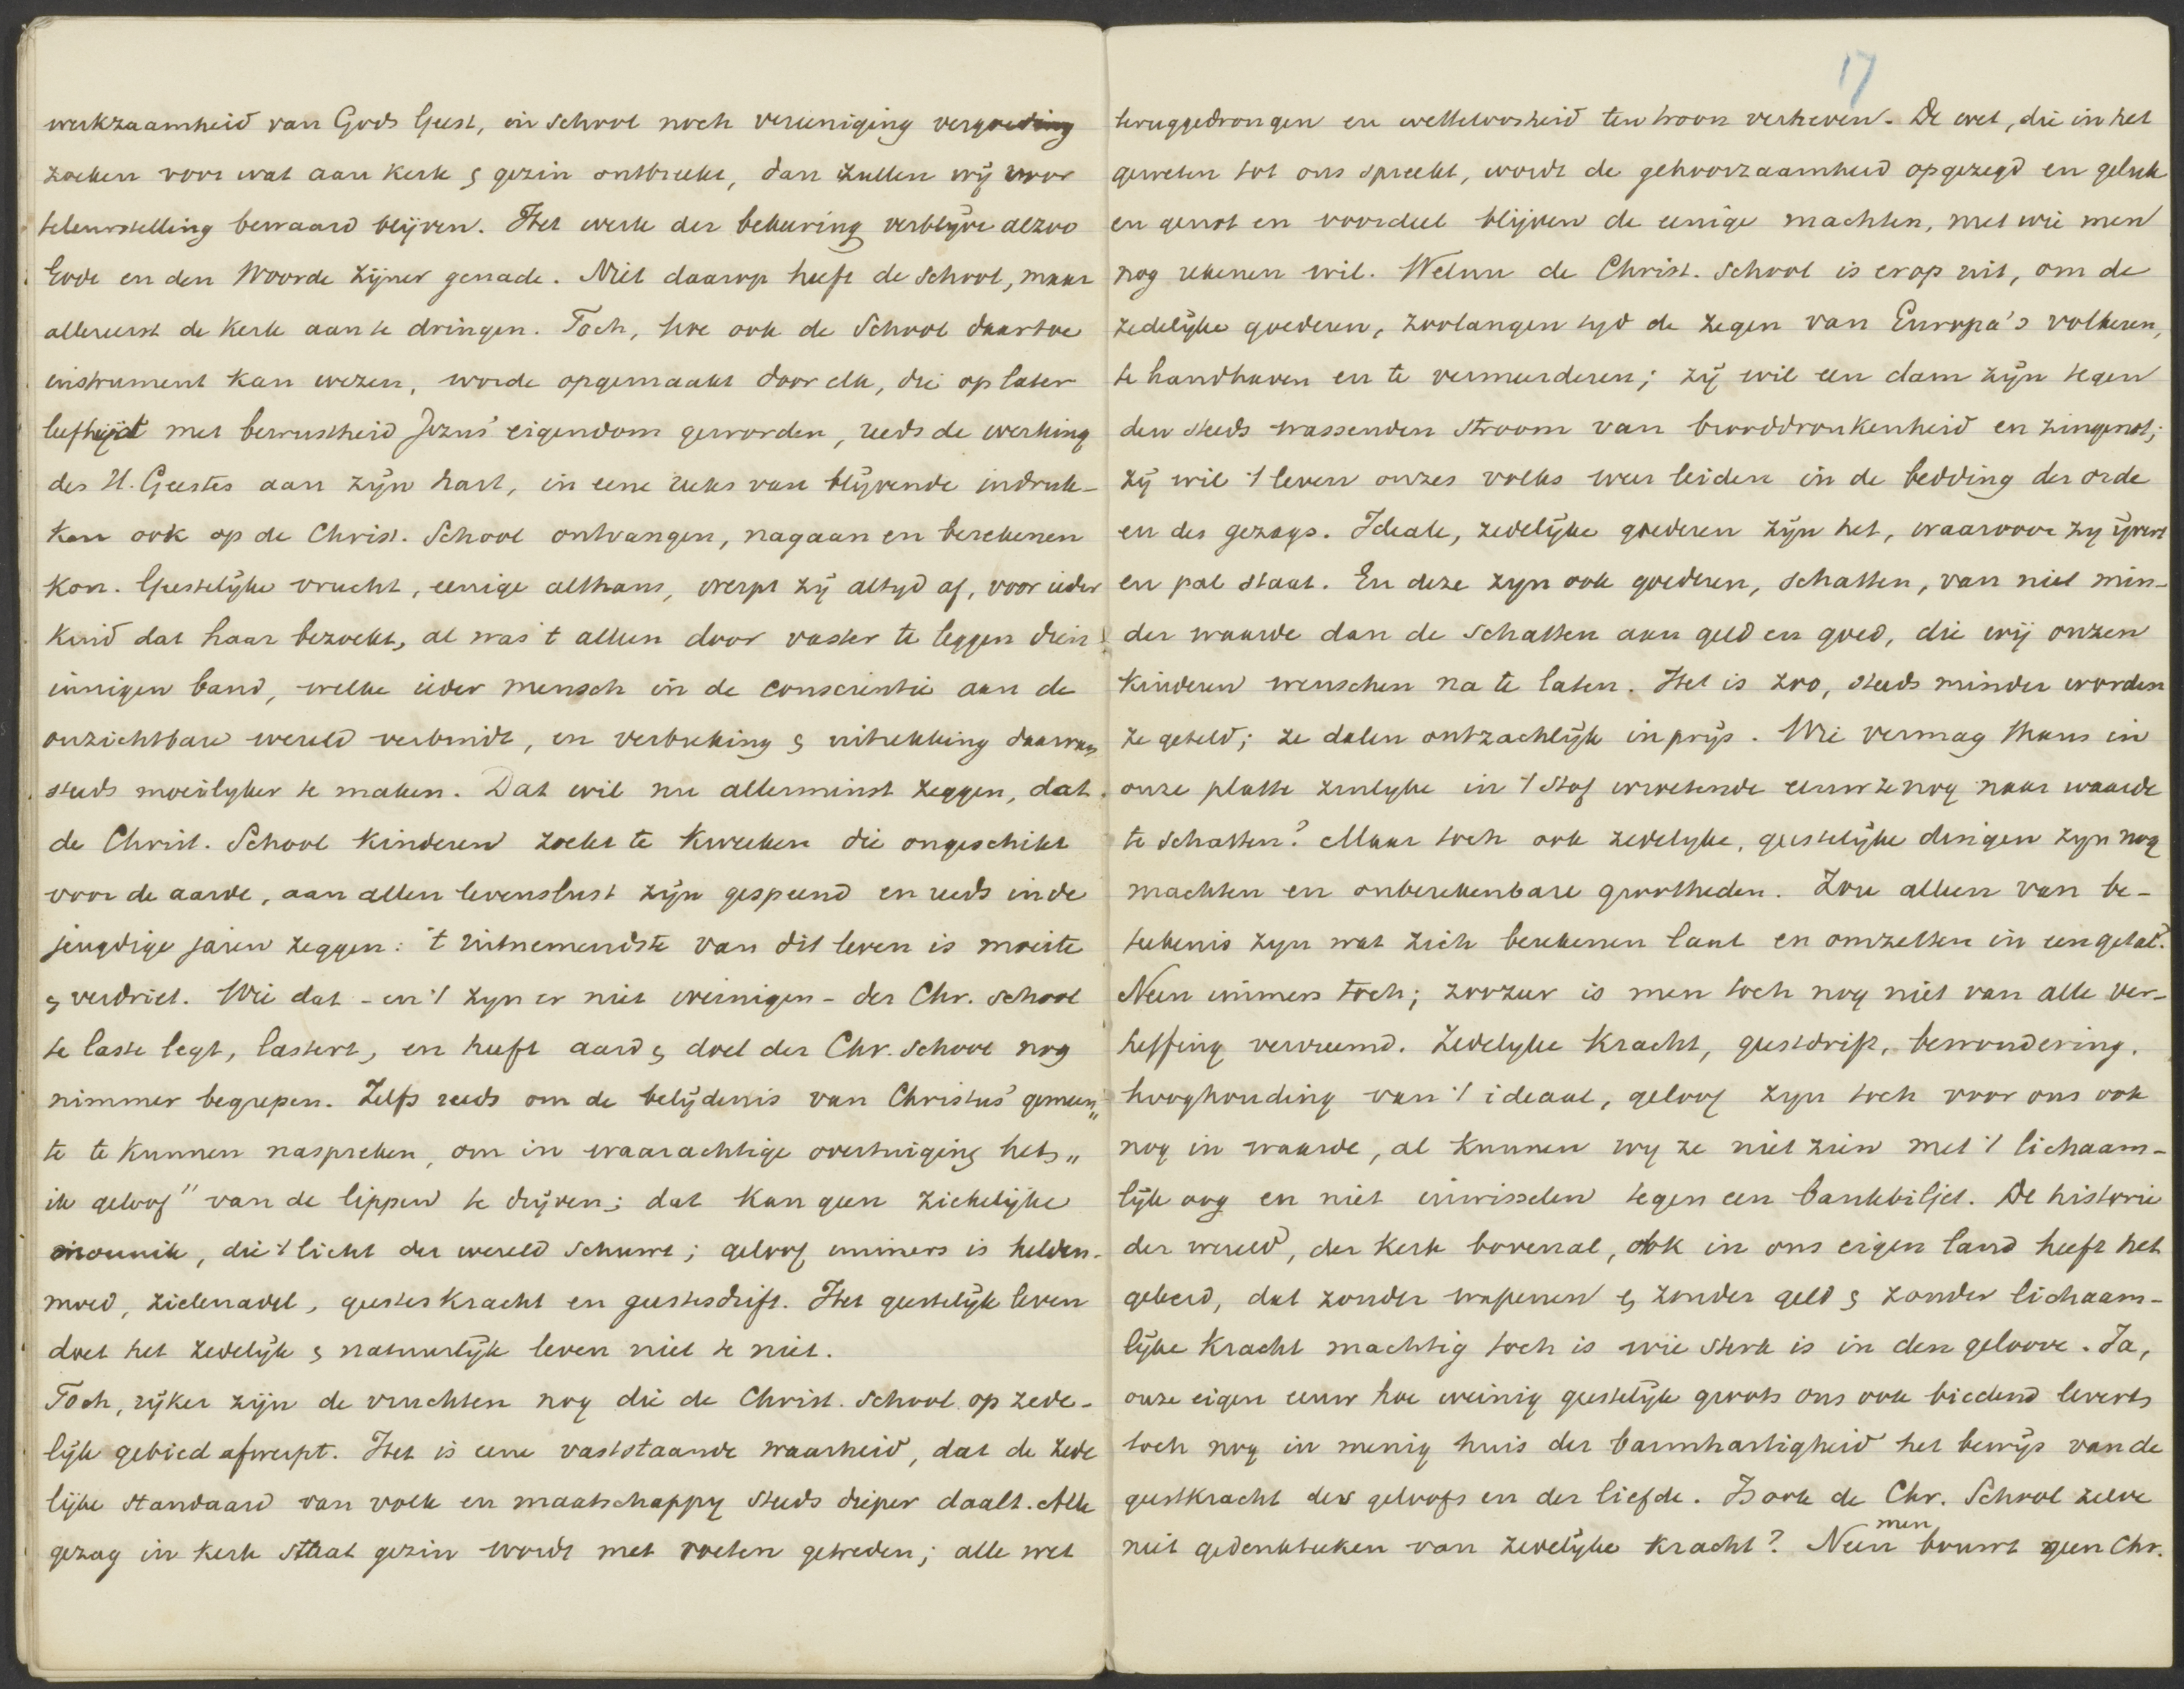 werkzaamheid van Gods Geest, in school noch vereeniging vergoeding
zoeken voor wat aan kerk & gezin ontbreekt, dan zullen wij voor
teleurstelling bewaard blijven. Het werk der bekeering verblijve alzoo
Gode en den Woorde zijner genade. Niet daarop heeft de School, maar
allereerst de kerk aan te dringen. Toch, hoe ook de School daartoe
instrument kan wezen, worde opgemaakt door elk, die op later
leeftijd met bewustheid Jezus' eigendom geworden, reeds de werking
des H. Geestes aan zijn hart, in eene reeks van blijvende indruk-
ken ook op de Christ. School ontvangen, nagaan en berekenen
kon. Geestelijke vrucht, eenige althans, werpt zij altyd af, voor ieder
kind dat haar bezoekt, al was 't alleen door vaster te leggen dien
innigen band, welke ieder mensch in de conscientie aan de
onzichtbare wereld verbindt, en verbreking & uitrekking daarvan
steeds moeilyker te maken. Dat wil nu allerminst zeggen, dat
de Christ. School kinderen zoekt te kweeken die ongeschikt
voor de aarde, aan allen levenslust zijn gespeend en reeds in de
jeugdige jaren zeggen: 't uitnemendste van dit leven is moeite
& verdriet. Wie dat - en 't zyn er niet weinigen - der Chr. school
te laste legt, lastert, en heeft aard & doel der Chr. School nog
nimmer begrepen. Zelfs reeds om de belijdenis van Christus' gemeen"
te te kunnen naspreken, om in waarachtige overtuiging het "
ik geloof" van de lippen te drijven; dat kan geen ziekelijke
monnik, die 't licht der wereld schuwt; geloof immers is helden-
moed, zielenadel, geesteskracht en geestesdrift. Het geestelijk leven
doet het zedelijk & natuurlijk leven niet te niet.
Toch, rijker zijn de vruchten nog die de Christ. School op zede-
lijk gebied afwerpt. Het is eene vaststaande waarheid, dat de zede
lijke standaard van volk en maatschappy steeds dieper daalt. Alle
gezag in kerk staat gezin wordt met voeten getreden; alle wet
17
teruggedrongen en wetteloosheid ten troon verheven. De wet, die in het
geweten tot ons spreekt, wordt de gehoorzaamheid opgezegd en geluk
en genot en voordeel blijven de eenige machten, met wie men
nog rekenen wil. Welnu de Christ. School is erop uit, om de
zedelijke goederen, zoolangen tyd de zegen van Europa's volkeren,
te handhaven en te vermeerderen; zij wil een dam zijn tegen
den steeds wassenden stroom van brooddronkenheid en zingenot;
zij wil 't leven onzes volks weer leiden in de bedding der orde
en des gezags. Ideale, zedelijke goederen zijn het, waarvoor zy ijvert
en pal staat. En deze zyn ook goederen, schatten, van niet min-
der waarde dan de schatten aan geld en goed, die wij onzen
kinderen wenschen na te laten. Het is zoo, steeds minder worden
ze geteld; ze dalen ontzachlijk in prijs. Wie vermag thans in
onze platte zinlyke in 't stof wroetende eeuw ze nog naar waarde
te schatten? Maar toch ook zedelyke, geestelijke dingen zyn nog
machten en onberekenbare grootheden. Zou alleen van be-
teekenis zyn wat zich berekenen laat en omzetten in een getal?
Neen immers toch; zoozeer is men toch nog niet van alle ver-
heffing vervreemd. Zedelyke kracht, geestdrift, bewondering,
hooghouding van 't ideaal, geloof zyn toch voor ons ook
nog in waarde, al kunnen wy ze niet zien met 't lichaam-
lijk oog en niet inwisselen tegen een bankbiljet. De historie
der wereld, der kerk bovenal, ook in ons eigen land heeft het
geleerd, dat zonder wapenen & zonder geld & zonder lichaam-
lijke kracht machtig toch is wie sterk is in den geloove. Ja,
onze eigen eeuw hoe weinig geestelijk groots ons ook biedend levert
toch nog in menig huis der barmhartigheid het bewijs van de
geestkracht des geloofs en der liefde. Is ook de Chr. School zelve
niet gedenkteeken van zedelijke kracht? Neen men bouwt geen Chr.